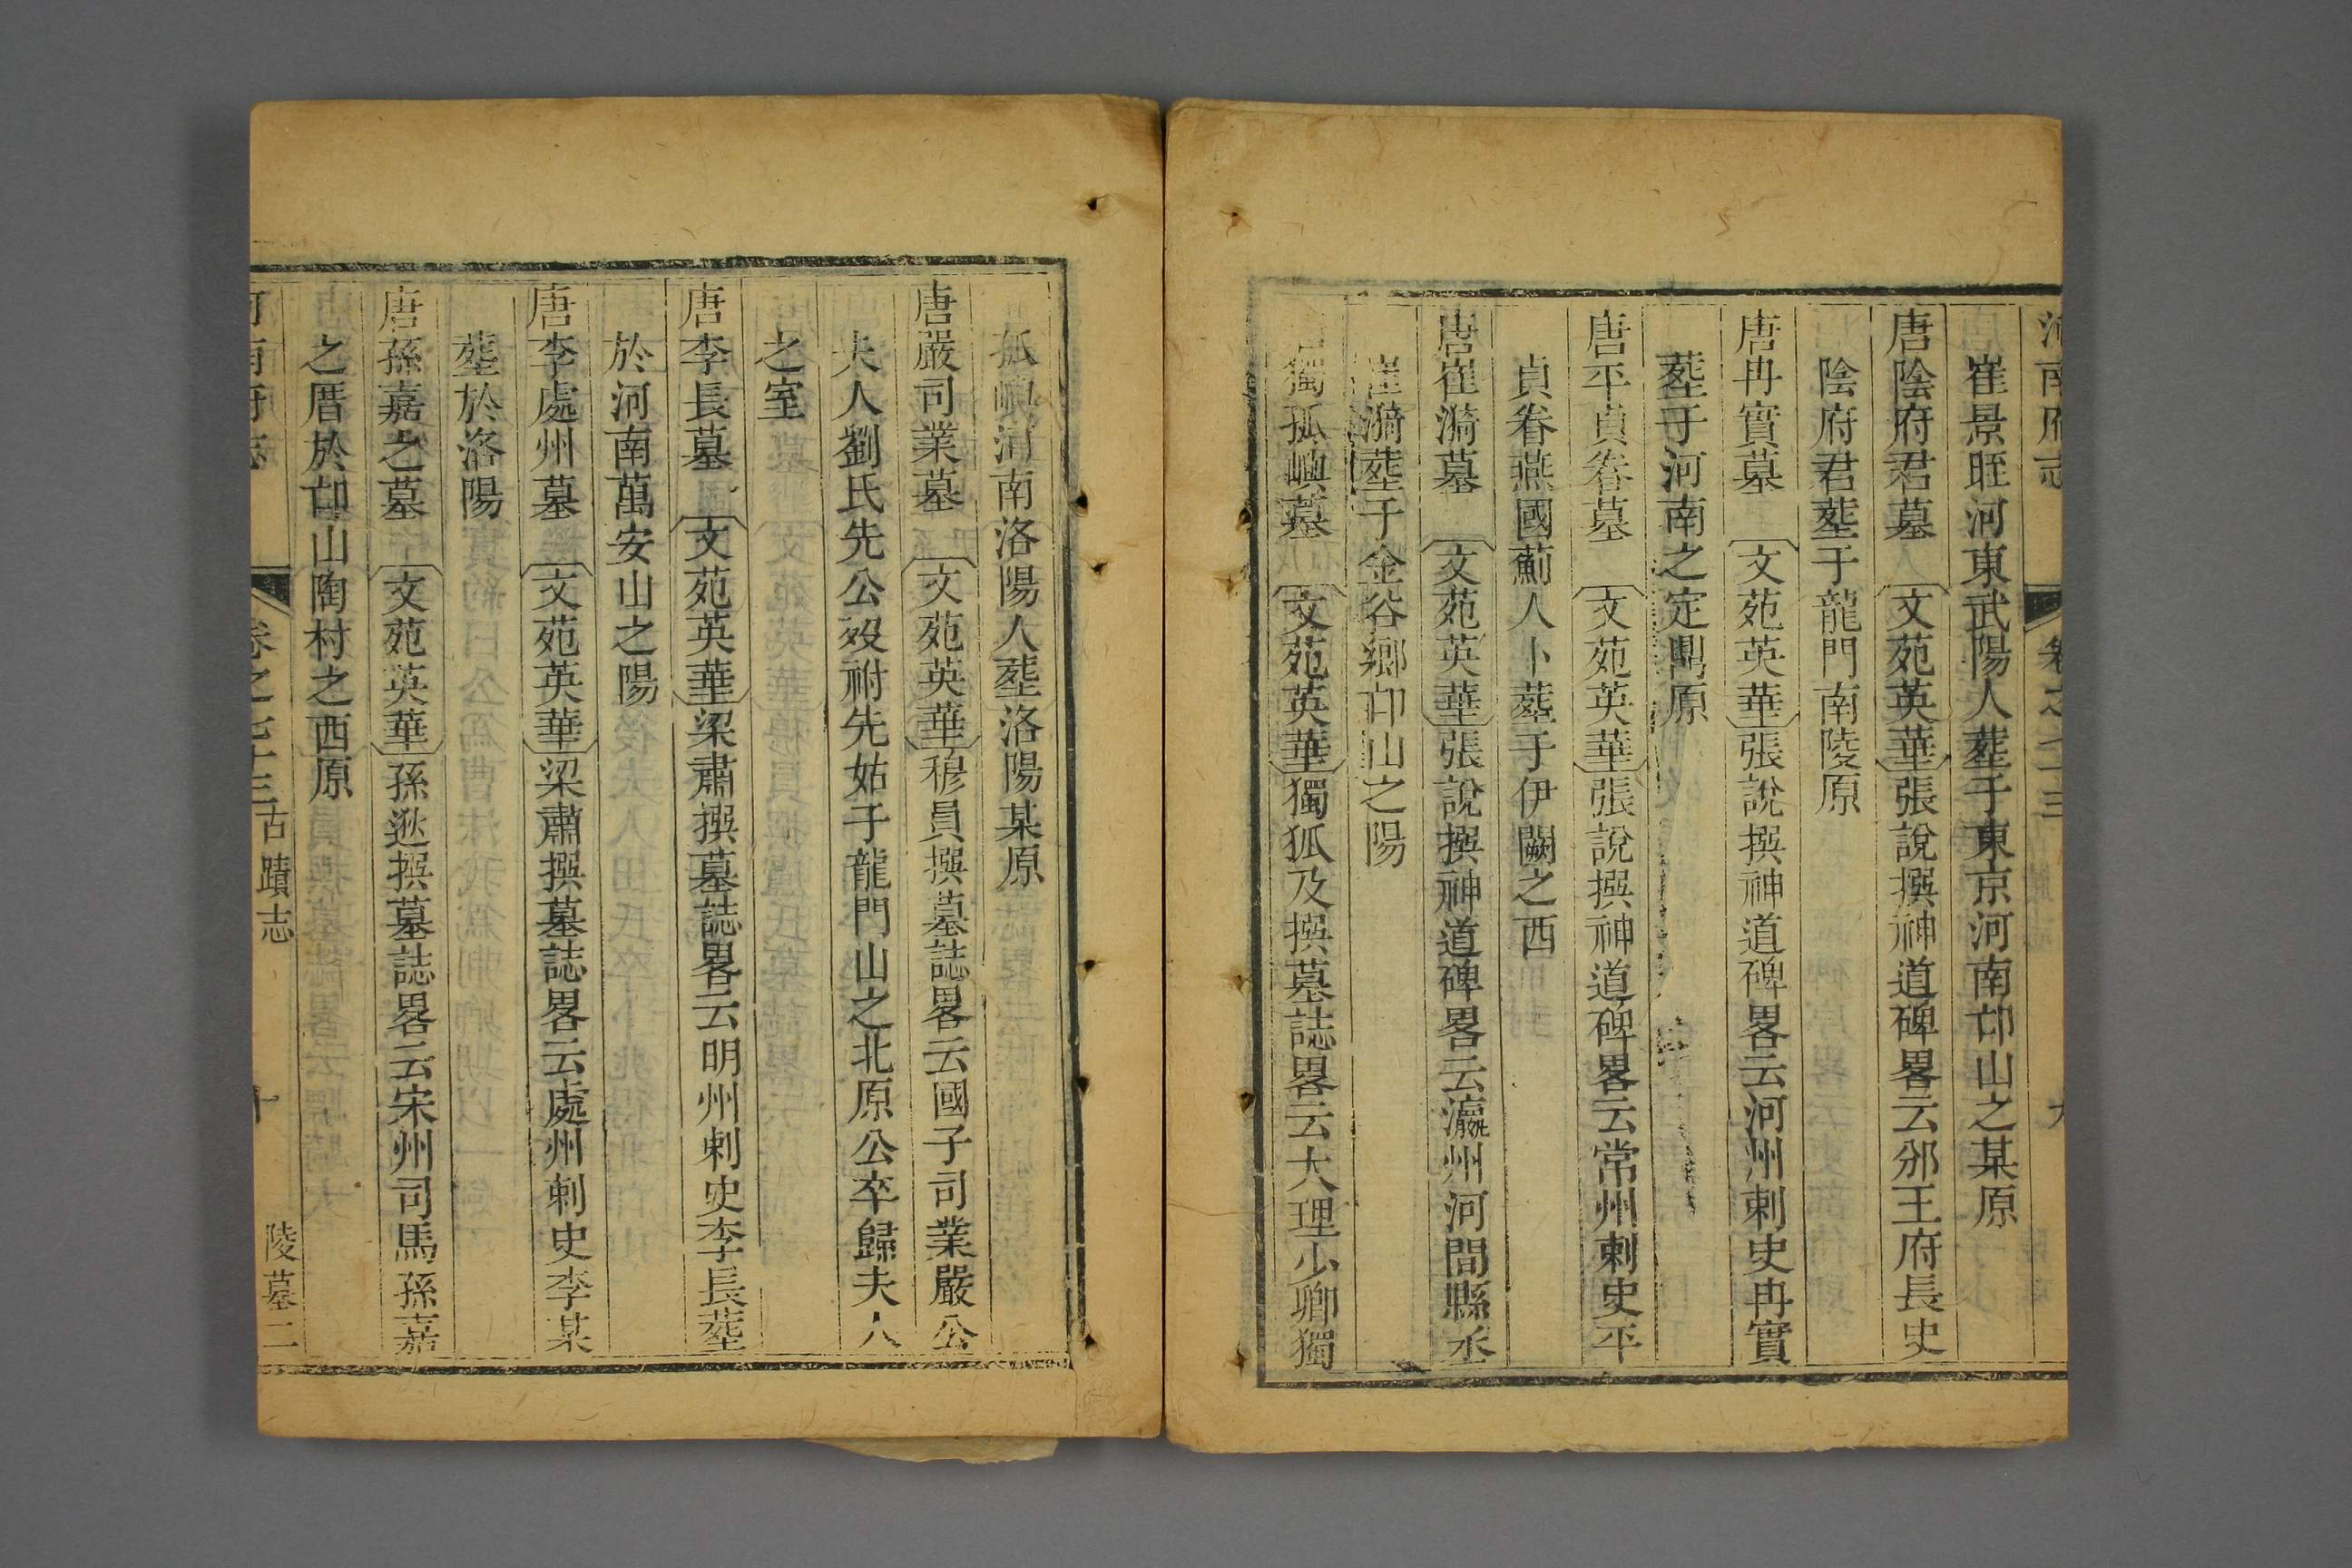 河南府志 卷之七十三 九
崔景晊河東武陽人塟于東京河南邙山之某原
唐陰府君墓〔文苑英華〕張說撰神道碑畧云邠王府長史
陰府君塟于龍門南陵原
唐冉實墓〔文苑英華〕張說撰神道碑畧云河州刺史冉實
塟于河南之定鼎原
唐平貞眘墓〔文苑英華〕張說撰神道碑畧云常州刺史平
貞眘燕國薊人卜塟于伊闕之西
唐崔漪墓〔文苑英華〕張說撰神道碑畧云瀛州河間縣丞
崔漪塟于金谷鄉邙山之陽
唐獨孤嶼墓〔文苑英華〕獨狐及撰墓誌畧云大理少卿獨
孤嶼河南洛陽人塟洛陽某原
唐嚴司業墓〔文苑英華〕穆員撰墓誌畧云國子司業嚴公
夫人劉氏先公歿祔先姑子龍門山之北原公卒歸夫人
之室
唐李長墓〔文苑英華〕梁肅撰墓誌畧云明州刺史李長塟
於河南萬安山之陽
唐李處州墓〔文苑英華〕梁肅撰墓誌畧云處州刺史李某
塟於洛陽
唐孫嘉之墓〔文苑英華〕孫逖撰墓誌畧云宋州司馬孫嘉
之厝於邙山陶村之西原
河南府志 卷之七十三 古蹟志 十 陵墓二